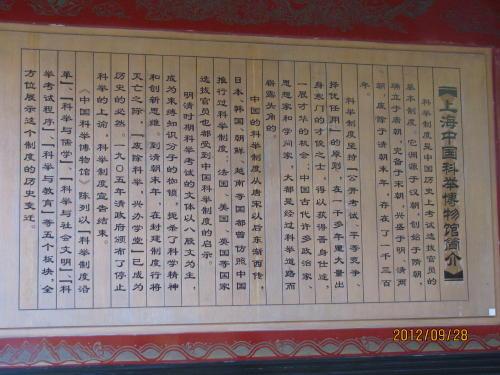 【上海中国科举博物馆简介】
科举制度是中国历史上考试选拔官员的
基本制度。它渊源于汉朝，创始于隋朝，
确立于唐朝，完备于宋朝，兴盛于明、清两
朝，废除于清朝末年，存在了一千三百
年。
科举制度坚持“公开考试、平等竞争、
择优任用”的原则，在一千多年里大量出
身寒门的才俊之士，得以获得晋身仕途，
一展才华的机会。中国古代许多政治家、
思想家和学问家，大都是经过科举道路而
崭露头角的。
中国的科举制度从唐宋以后东渐西传，
日本、韩国、朝鲜、越南等国都曾仿照中国
推行过科举制度；法国、美国、英国等国家
选拔官员也都受到中国科举制度的启示。
明清时期科举考试的文体以八股文为主，
成为束缚知识分子的枷锁，扼杀了科学精神
和创新思维。到清朝末年，在封建制度行将
灭亡之际，“废除科举，兴办学堂”已成为
历史的必然。一九〇五年清政府颁布了停止
科举的上谕，科举制度宣告结束。
《中国科举博物馆》陈列以“科举制度沿
革”、“科举与儒学”、“科举与社会文明”、“科
举考试程序”、“科举与教育”等五个板块，全
方位展示这个制度的历史变迁。
2012/09/28